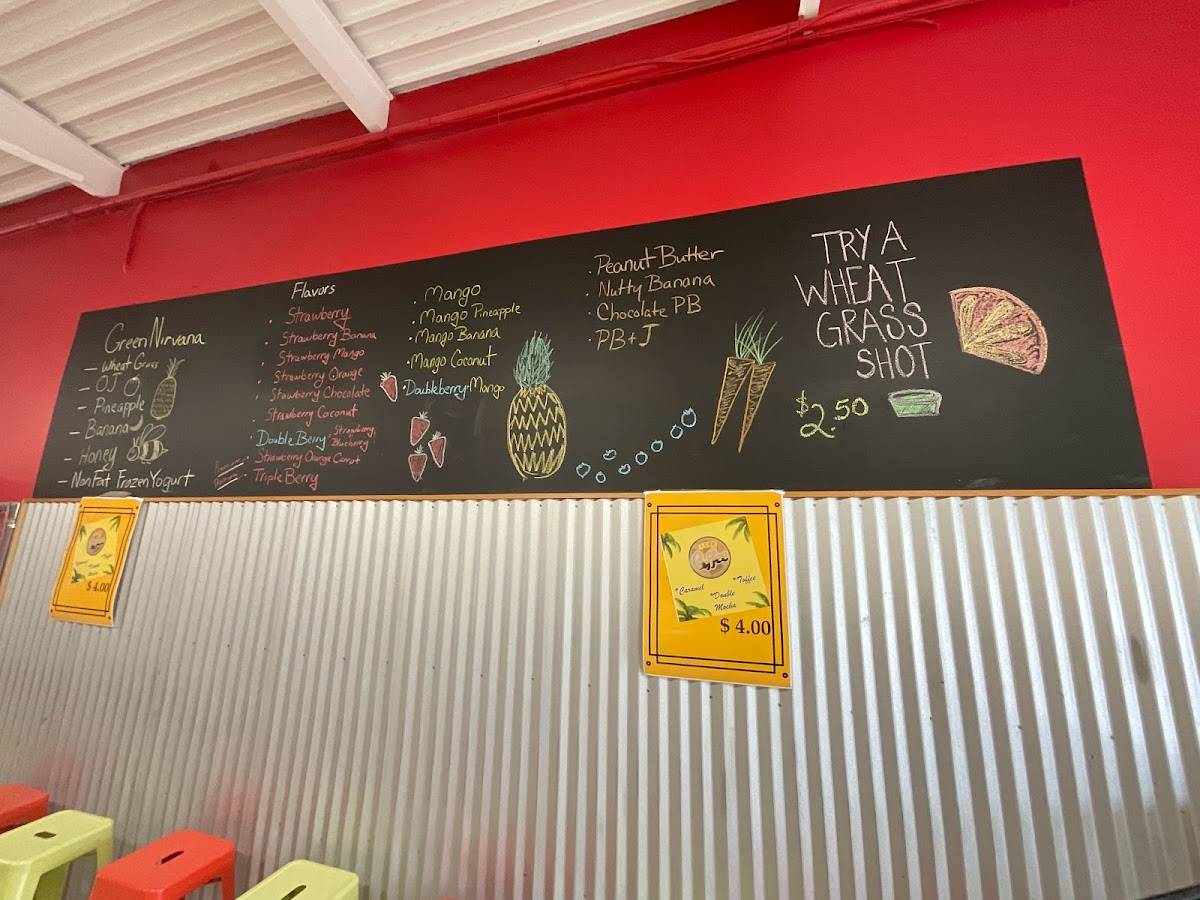 Green Nirvana
- Wheat Grass
- OJ
- Pineapple
- Banana
- Honey
- Non Fat Frozen Yogurt
Flavors
• Strawberry
• Strawberry Banana
• Strawberry Mango
• Strawberry Orange
• Strawberry Chocolate
Strawberry Coconut
• Double Berry - Strawberry,
Blueberry
Strawberry Orange Carrot
Triple Berry
• Mango
• Mango Pineapple
• Mango Banana
• Mango Coconut
• Doubleberry-Mango
• Peanut Butter
• Nutty Banana
• Chocolate PB
• PB+J
TRY A
WHEAT
GRASS
SHOT
$2.50
$ 4.00
Coffee
*Caramel
*Toffee
*Double
Mocha
$ 4.00